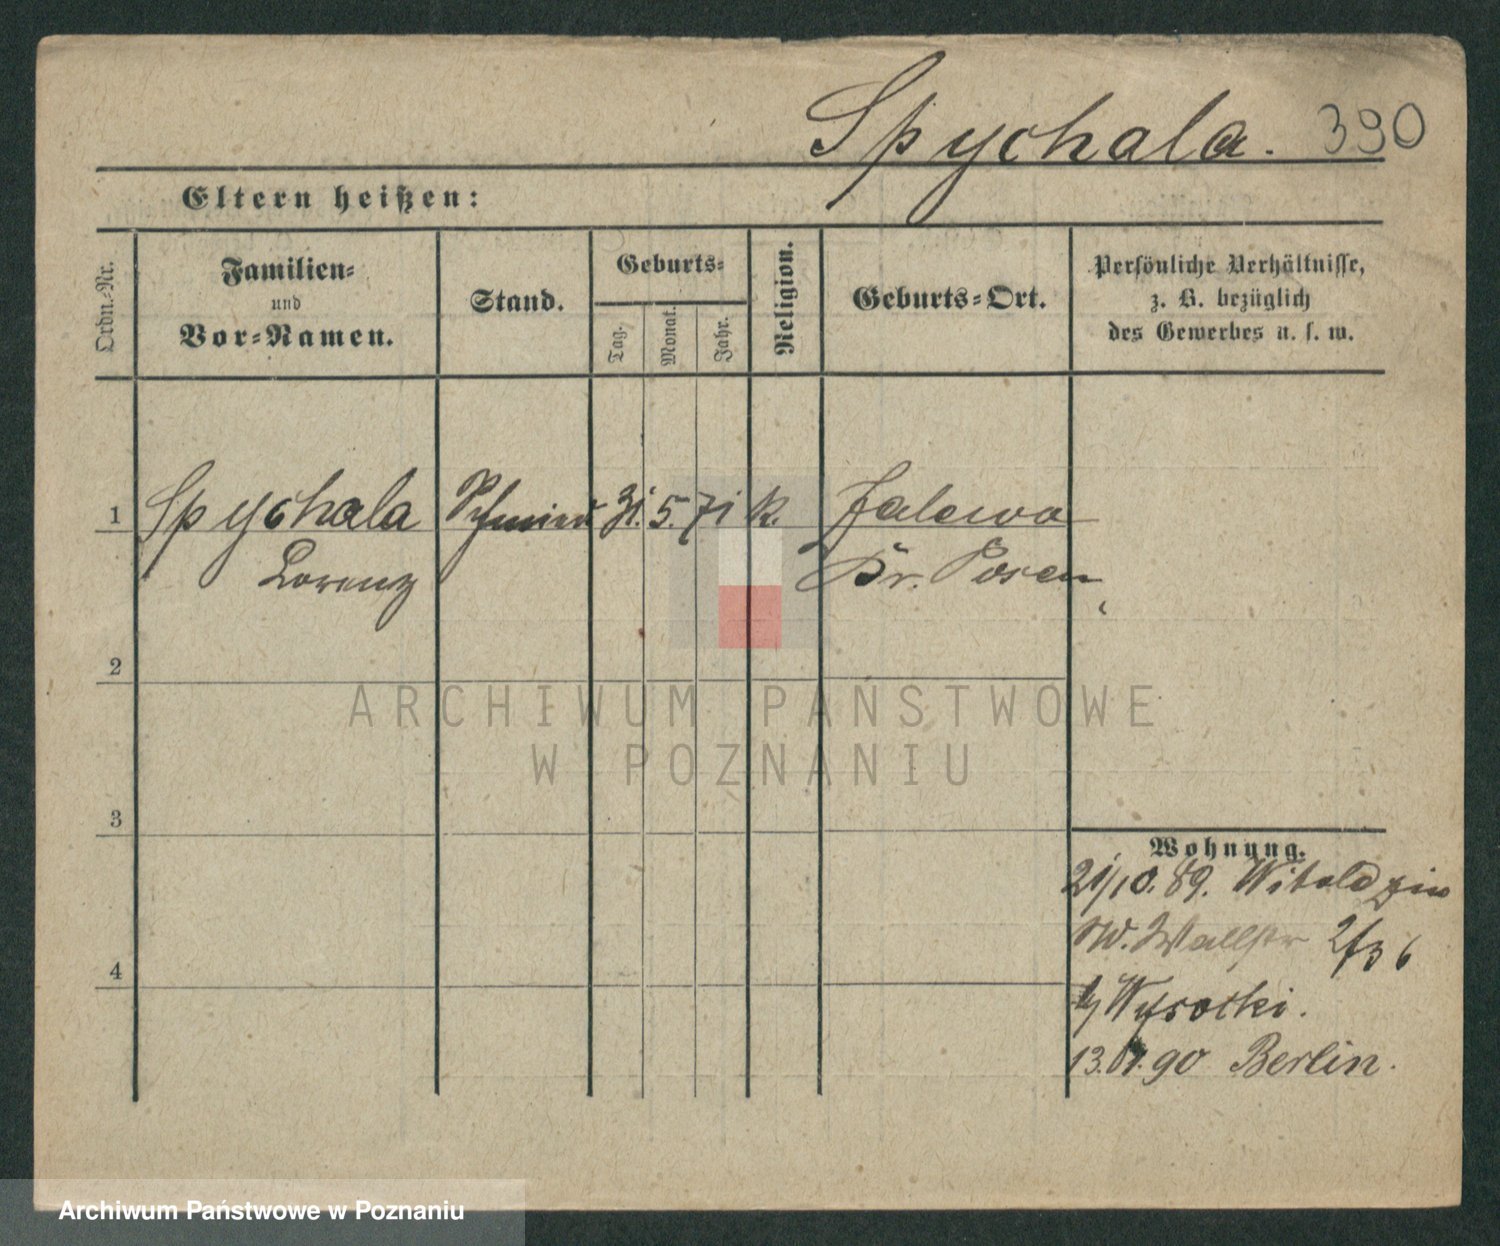 Spychala. 390
Eltern heißen:
Ordn.-Nr.
Familien-
und
Vor-Namen.
Stand.
Geburts-
Tag.
Monat.
Jahr.
Religion.
Geburts-Ort.
Persönliche Verhältnisse,
z. B. bezüglich
des Gewerbes u. s. w.
1 Spychala Schmied 31. 5. 71 k.
Lorenz Kr. Posen
2
3
4
Wohnung.
21/10. 89. Witoldzin
W. Wallstr 2/3 6
b/ Wysocki.
13. 90 Berlin.
ARCHIWUM PAŃSTWOWE
W POZNANIU
Archiwum Państwowe w Poznaniu